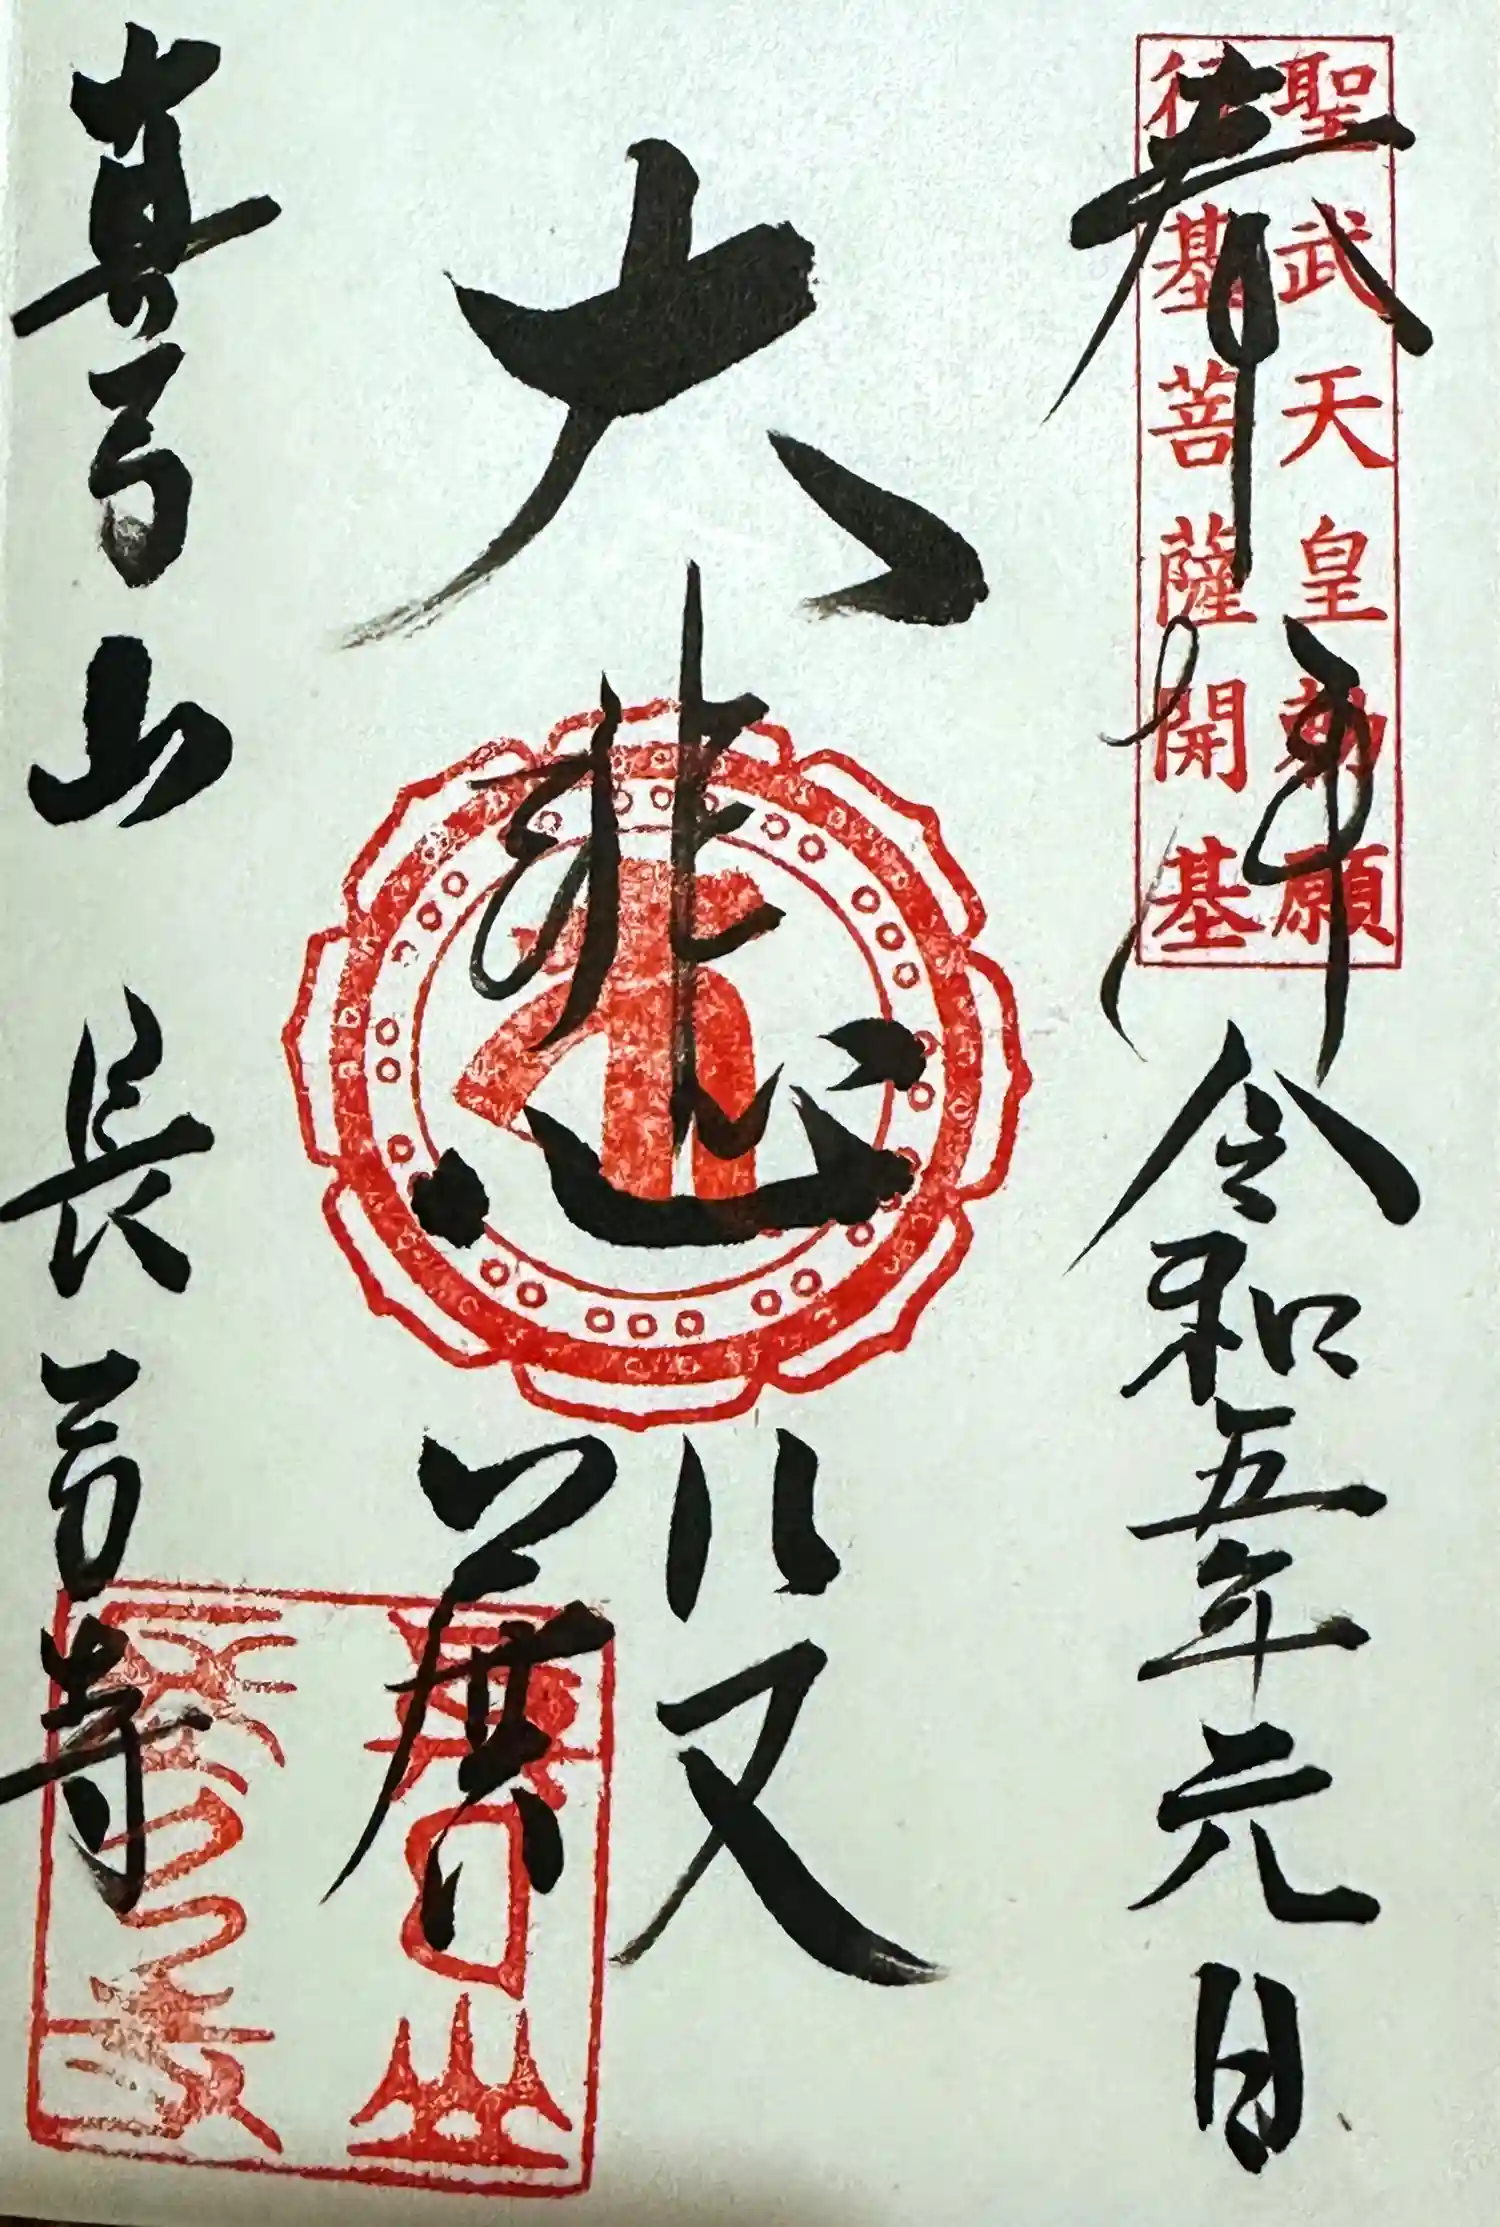 聖武天皇勅願
行基菩薩開基
奉拝 令和五年元日
大悲殿
真弓山 長弓寺